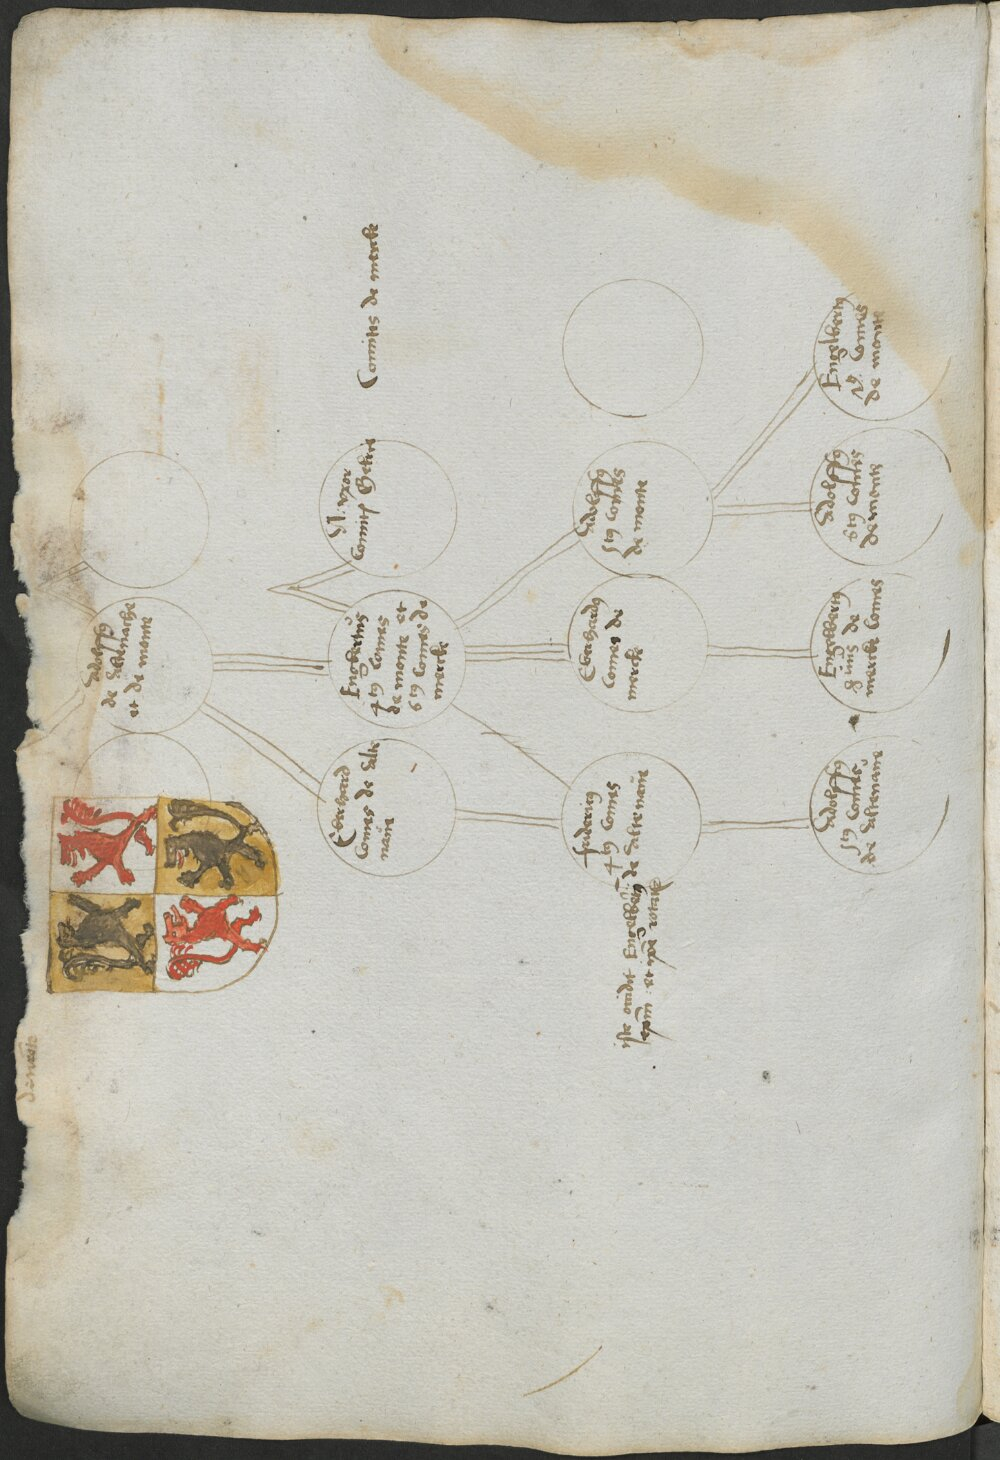 Comites de marke
Adolphus
de Altenache
et de monte
N. uxor
Comitis Gelrie
Engbertus
4tus Comes
de monte et
6tus Comes de
marke
Eberhard
Comes de Alte
nãw
Adolphus
5tus Comes
de monte
Eberhardus
Comes de
marke
fridericus
4tus Comes
de Altenaw
iste occidit Engelbertum
Engelbertus
Comes
de monte
Adolphus
6tus Comes
de monte
Engelbertus
8timus de
marke Comes
Adolphus
5tus Comes
de Altenaw